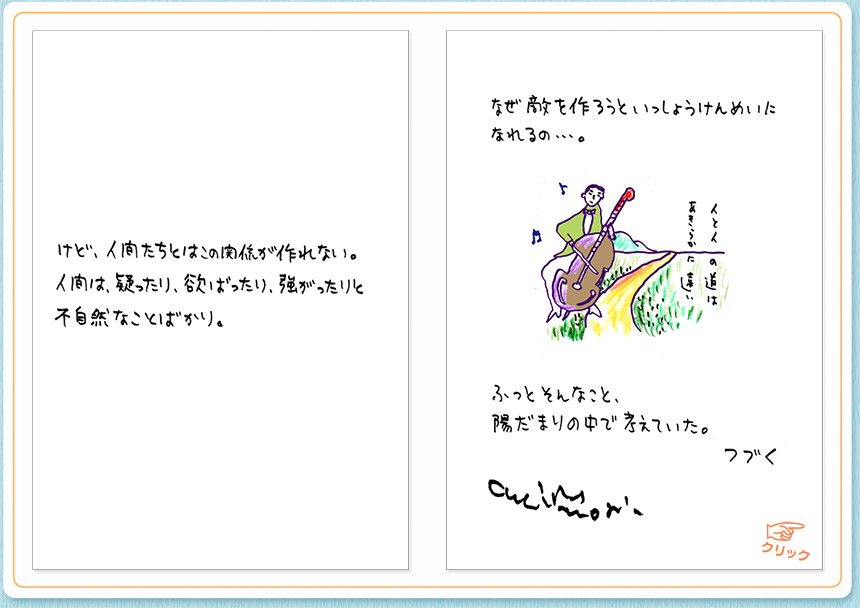 けど、人間たちとはこの関係が作れない。
人間は、疑ったり、欲ばったり、強がったりと
不自然なことばかり。
なぜ敵を作ろうといっしょうけんめいに
なれるの…。
人と人の道は
あきらかに遠い
ふっとそんなこと、
陽だまりの中で考えていた。
つづく
クリック